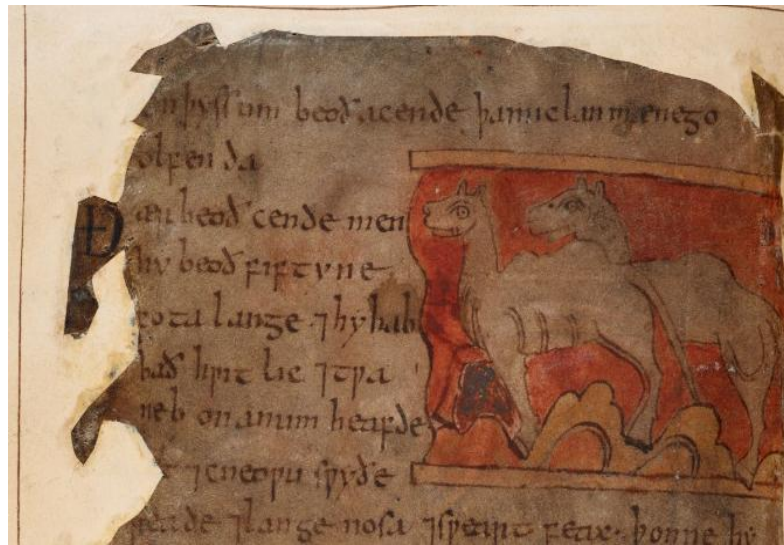 on þyssum beoð acende þa miclan mænego
olfen da
Ðar beoð cende men
hy beoð fiftyne
fota lange ⁊ hy hab
bað hƿit lic ⁊ tƿa
neb on anum heafde
⁊ cneoƿu sƿyðe
reade ⁊ lange nosa ⁊ sƿeart feax· þonne hy